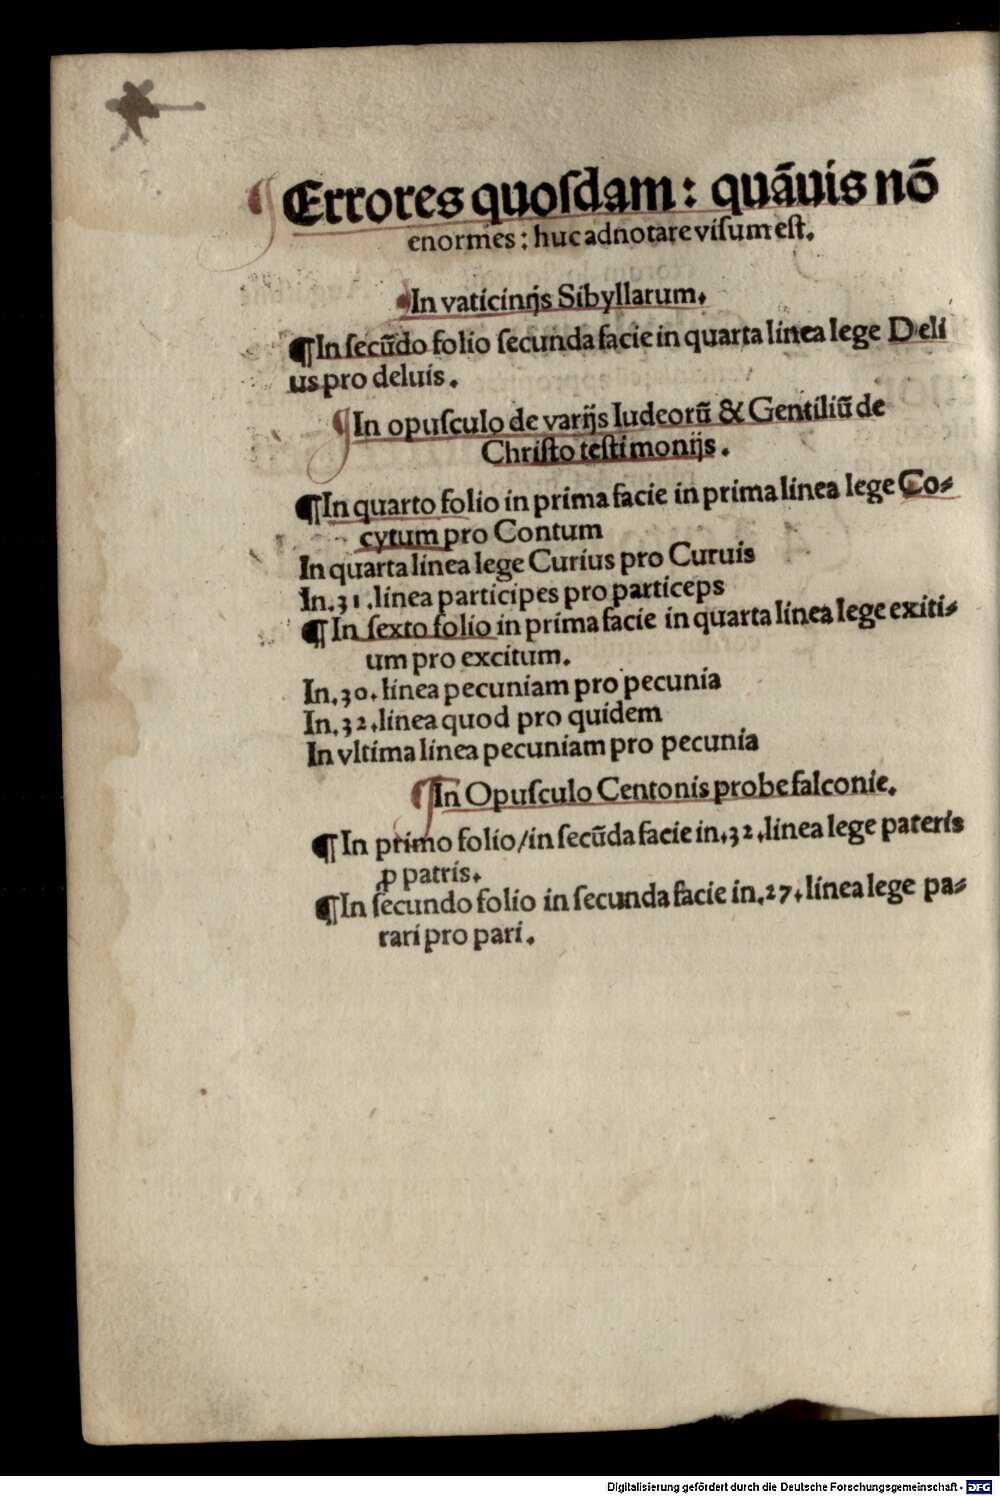 ¶Errores quoſdam: quãuis nõ
enormes: huc adnotare viſum eſt.
¶In vaticinijs Sibyllarum.
¶In ſecũdo folio ſecunda facie in quarta linea lege Deli
us pro deluis.
¶In opuſculo de varijs Iudeorũ & Gentiliũ de
Chriſto teſtimonijs.
¶In quarto folio in prima facie in prima linea lege Co⸗
cytum pro Contum
In quarta linea lege Curius pro Curuis
In.31.linea participes pro particeps
¶In ſexto folio in prima facie in quarta linea lege exiti⸗
um pro excitum.
In.30.linea pecuniam pro pecunia
In.32.linea quod pro quidem
In vltima linea pecuniam pro pecunia
¶In Opuſculo Centonis probe falconie.
¶In primo folio/in ſecũda facie in.32.linea lege pateris
ꝓ patris.
¶In ſecundo folio in ſecunda facie in.27.linea lege pa⸗
rari pro pari.
Digitalisierung gefördert durch die Deutsche Forschungsgemeinschaft - DFG